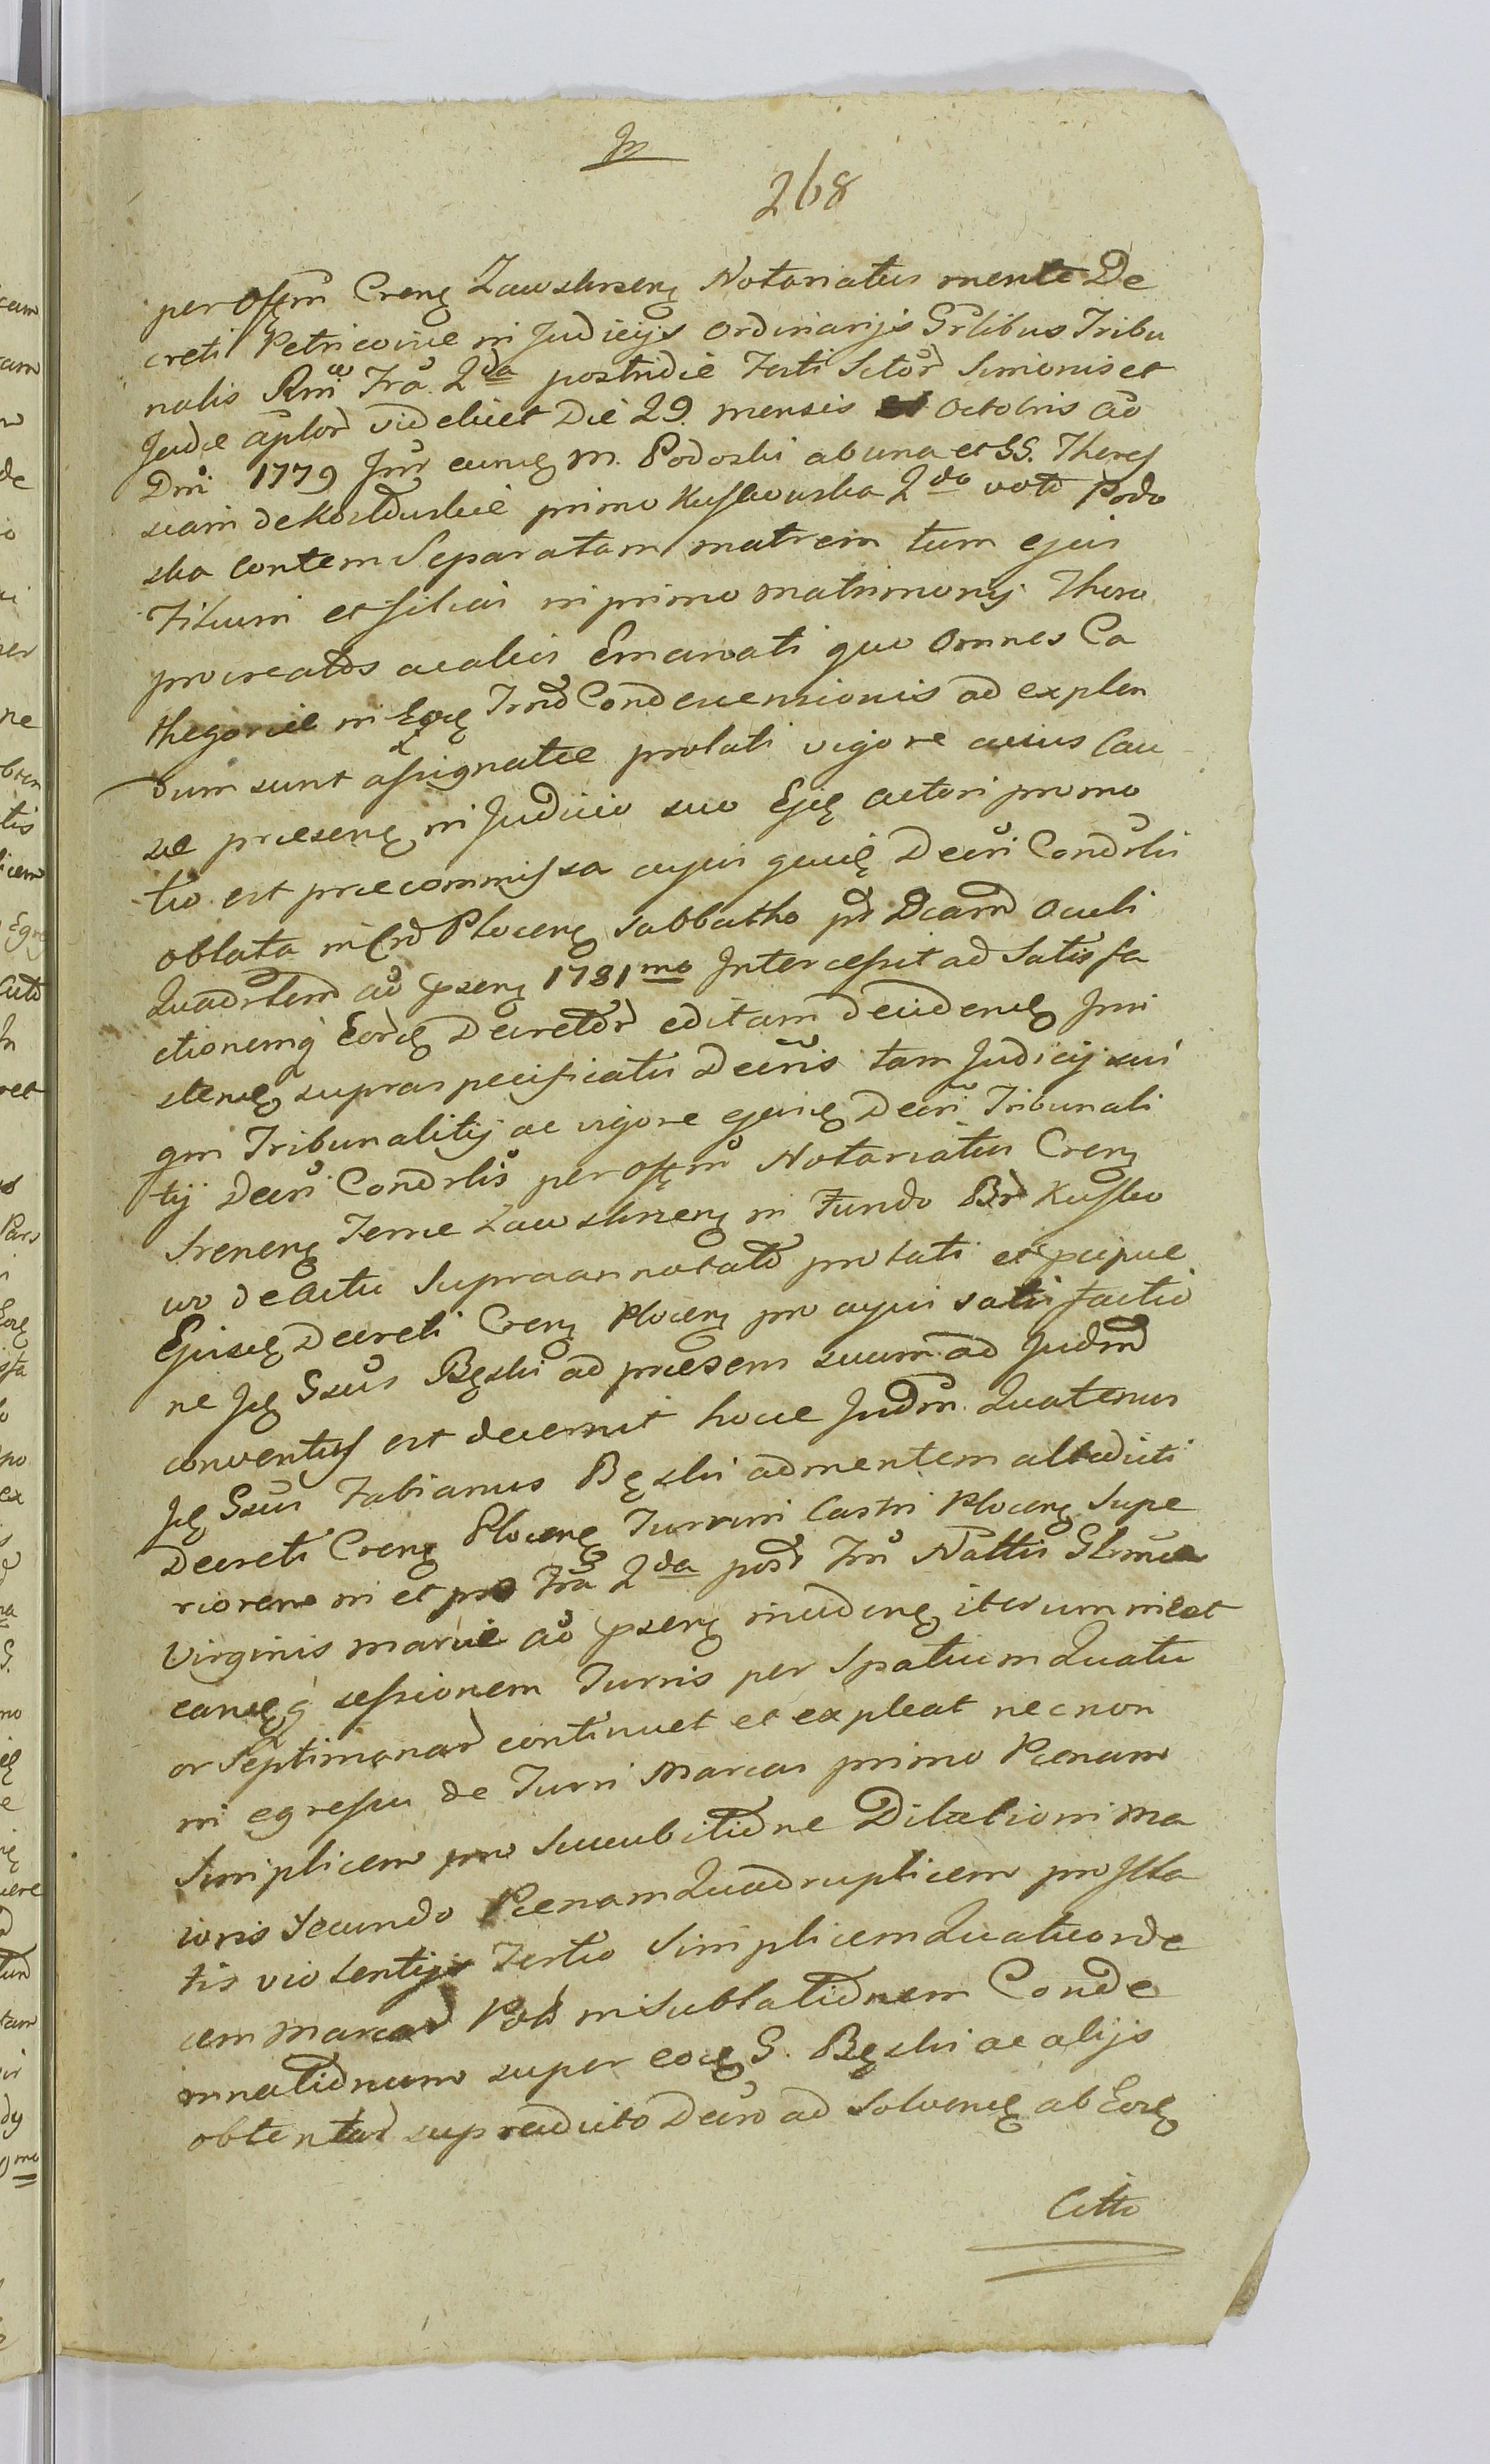 268
per Offm Crens Zawskrzens Notariatus mente De
creti Petricoviae in Judicijs ordinarijs Grlibus Tribu
nalis Rni Fra 2da postridie Festi Sctor Simonis et
Judae Aplor videlicet Die 29 mensis Octobris Ao
Dni 1779 Intr eundę M. Podoski ab una et GG. There
siam de primo 2do voto Podo
ska Contem Separatam matrem tum ejus
Filium et filias in primo matrimonij Thoro
procreatos ac alios Emanati quo omnes Ca
thegoriae in Eodę Trmo Condescensionis ad explen
dum sunt assignatae prolati vigore cuius Cau
sa praesens in Judicio suo Ejdę actori promo
tio est praecommissa cujus quidę Decri Condrlis
oblata in Crd Plocens Sabbatho pt Dcam Oculi
Quadrlem ao psens 1781mo Intercessit ad Satisfa
ctionemq Eordę Decretor editam decidendę Inni
tendę supraspecificatis Decris tam Judicij sui
qm Tribunalitij ac vigore ejusdę Decri Tribunali
tij Decri Condrlis per Offm Notariatus Crens
Srenens Terrae Zawskrzens in Fundo Br
wo de Actu Supraannotato prolati et pcipue
Ejusdę Decreti Crens Plocens pro cujus satisfactio
ne Idę Gsus Bęski ad praesens suum ad Judm
conventus est decernit hocce Judm Quatenus
Idę Gsus Fabianus Bęski ad mentem allegati
Decreti Crens Plocens Turrim Castri Plocens Supe
riorem in et pro Fra 2da post Fm Nattis Glmae
Virginis Mariae ao psens incidens iterum ineat
eandęq sessionem Turris per Spatium Quatu
or Septimanar continuet et expleat nec non
in egressu de Turri Marcas primo Poenam
Simplicem pro Succubitione Dilationi Ma
ioris Secundo Poenam Quadruplicem pro Illa
tis violentijs Tertio Simplicem Quatuorde
cem Marcar Pol in Sublationem Conde
mnationum super eodę G. Bęski ac alijs
obtentar supradicto Decro ad Solvendę ab Eodę
Citto